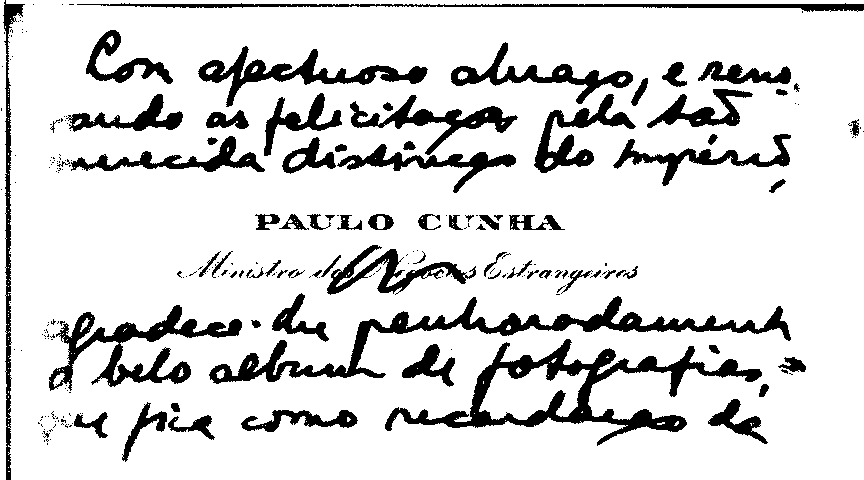 Com afectuoso abraço, e reno-
vando as felicitações pela tão
merecida distinção do Império,
PAULO CUNHA
Ministro dos Negócios Estrangeiros
agradece-lhe penhoradamente
o belo album de fotografias,
que fica como recordação da